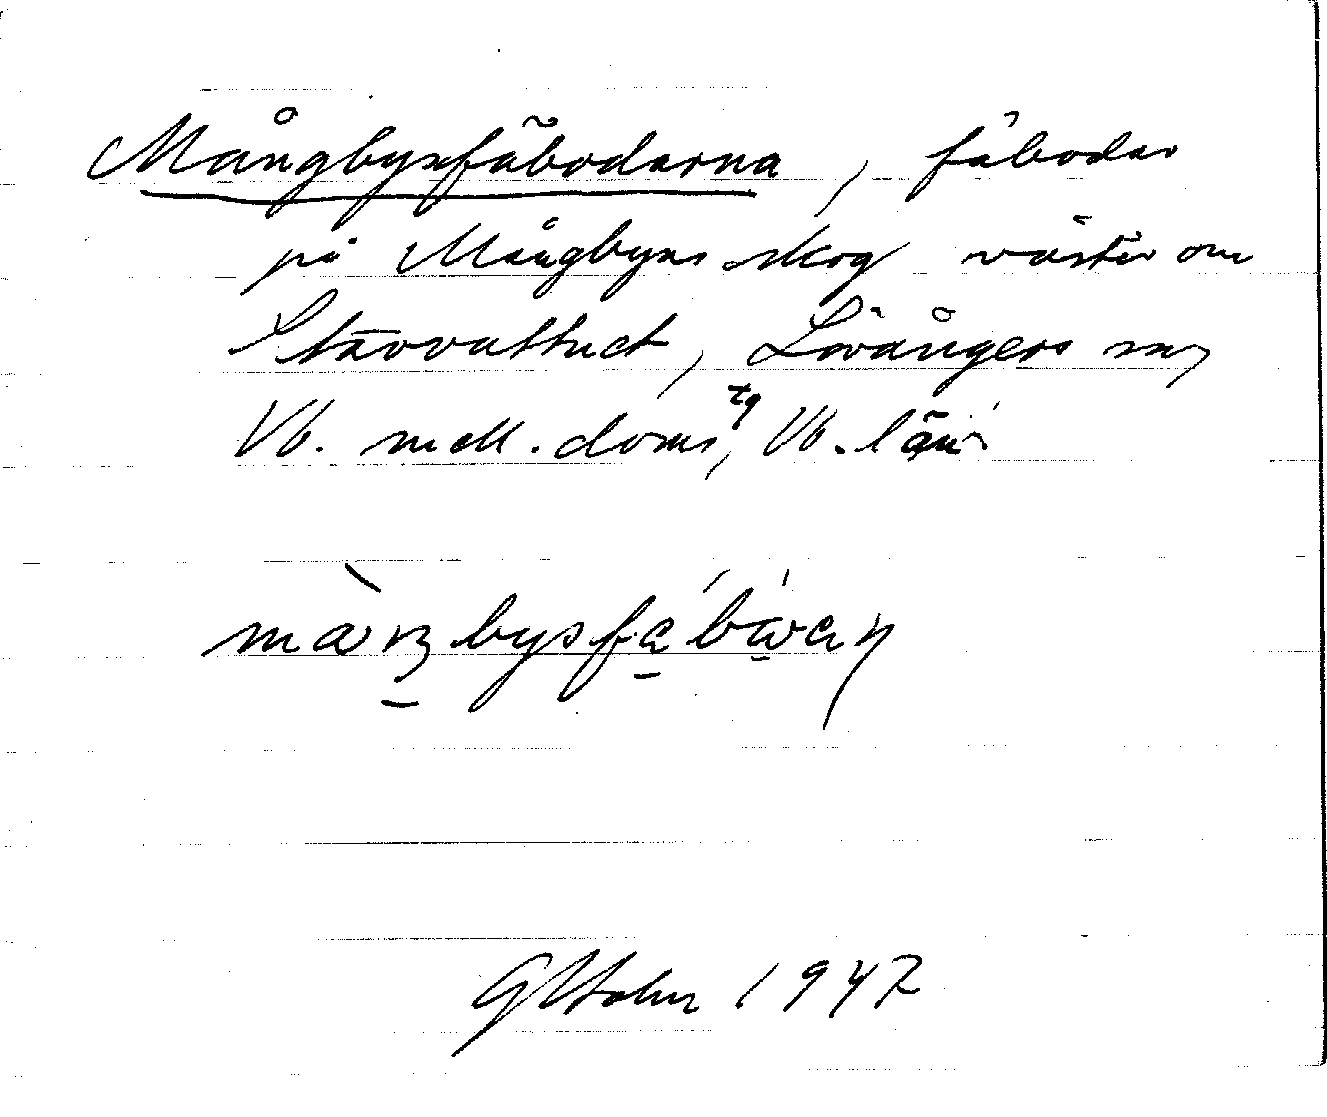 Mångbysfäbodarna, fäbodar
på Mångbyns skog väster om
Stavvattnet, Lövångers sn,
Vb. mell. doms tg, Vb. län
G Holm 1947